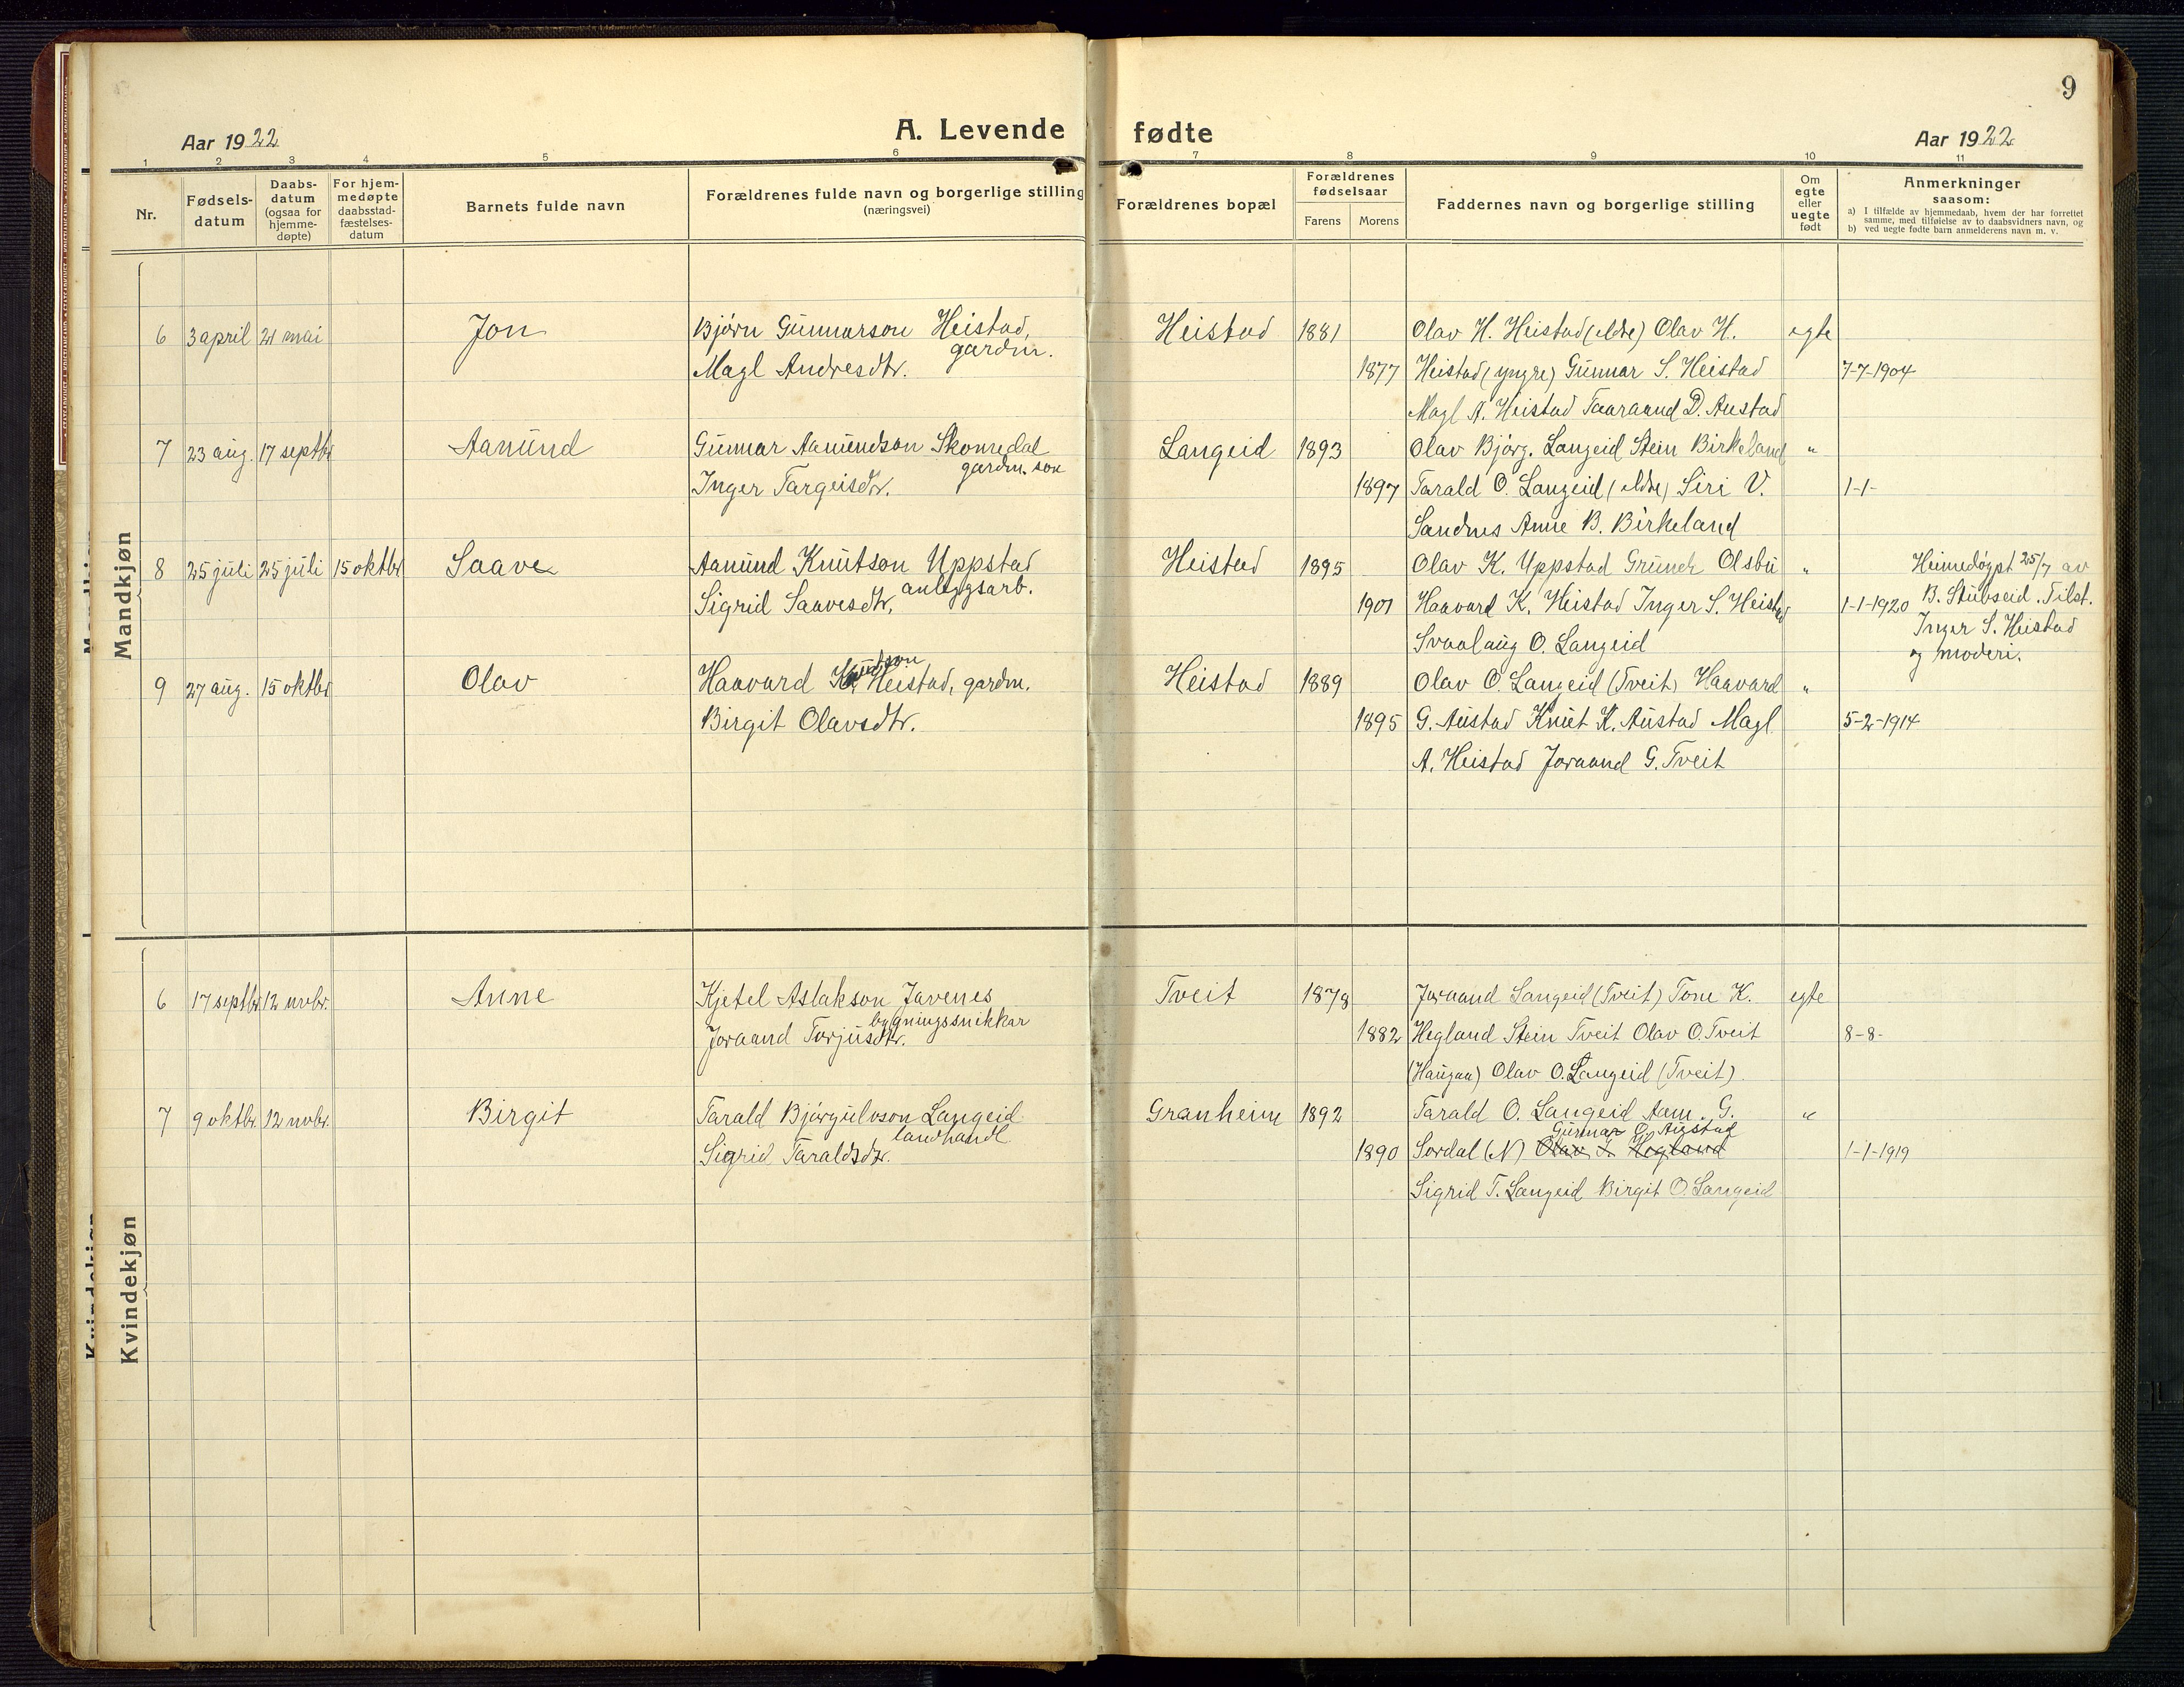 9
Aar 1922
A. Levende fødte
Aar 1922
1 2 3 4 5 6 7 8 9 10 11
Nr.
Fødsels-
datum
Daabs-
datum
(ogsaa for
hjemme-
døpte)
For hjem-
medøpte
daabsstad-
fæstelses-
datum
Barnets fulde navn
Forældrenes fulde navn og borgerlige stilling
(næringsvei)
Forældrenes bopæl
Forældrenes
fødselsaar
Farens Morens
Faddernes navn og borgerlige stilling
Om
egte
eller
uegte
født
Anmerkninger
saasom:
a) I tilfælde av hjemmedaab, hvem der har forrettet
samme, med tilføielse av to daabsvidners navn, og
b) ved uegte fødte barn anmelderens navn m. v.
Mandkjøn
6 3 april 21 mai Jon Bjørn Gunnarson Heistad, Heistad 1881 Olav H. Heistad (eldre) Olav H. egte
gardm.
Magl Andresdtr. 1877 Heistad (yngre) Gunnar S. Heistad 7-7-1904
Magl A. Heistad Taaraand D. Austad
7 23 aug. 17 septbr Aanund Gunnar Aanundson Skomedal Langeid 1893 Olav Bjørg. Langeid Stein Birkeland "
gardm. son
Inger Targeisdtr. 1897 Tarald O. Langeid (eldre) Siri V. 1-1-
Sandnes Anne B. Birkeland
8 25 juli 25 juli 15 oktbr Saave Aanund Knutson Uppstad Heistad 1895 Olav K. Uppstad Olsbu " Heimedøypt 25/7 av
anleggsarb.
Sigrid Saavesdtr, 1901 Haavard K. Heistad Inger S. Heistad 1-1-1920 B. Stubseid. Tilst.
Svaalaug O. Langeid Inger S. Heistad
og moderi.
9 27 aug. 15 oktbr Olav Haavard Knutson Heistad, gardm. Heistad 1889 Olav O. Langeid (Tveit) Haavard "
Birgit Olavsdtr. 1895 G. Austad Knut K. Austad Magl 5-2-1914
A. Heistad Joraand G. Tveit
Kvindekjøn
6 17 septbr. 12 novbr. Anne Kjetel Aslakson Javenes Tveit 1878 Joraand Langeid (Tveit) Tone K. egte
bygningssnikkar
Joraand Torjusdtr. 1882 Hegland Stein Tveit Olav O. Tveit 8-8-
(Haugaa) Olav O. Langeid (Tveit)
7 9 oktbr. 12 novbr. Birgit Tarald Bjørgulvson Langeid Granheim 1892 Tarald O. Langeid Aam. G. "
landhandl
Gunnar O. Austad
Sigrid Taraldsdtr. 1890 Sordal (N) Olav T. Hegland 1-1-1919
Sigrid T. Langeid Birgit O. Langeid